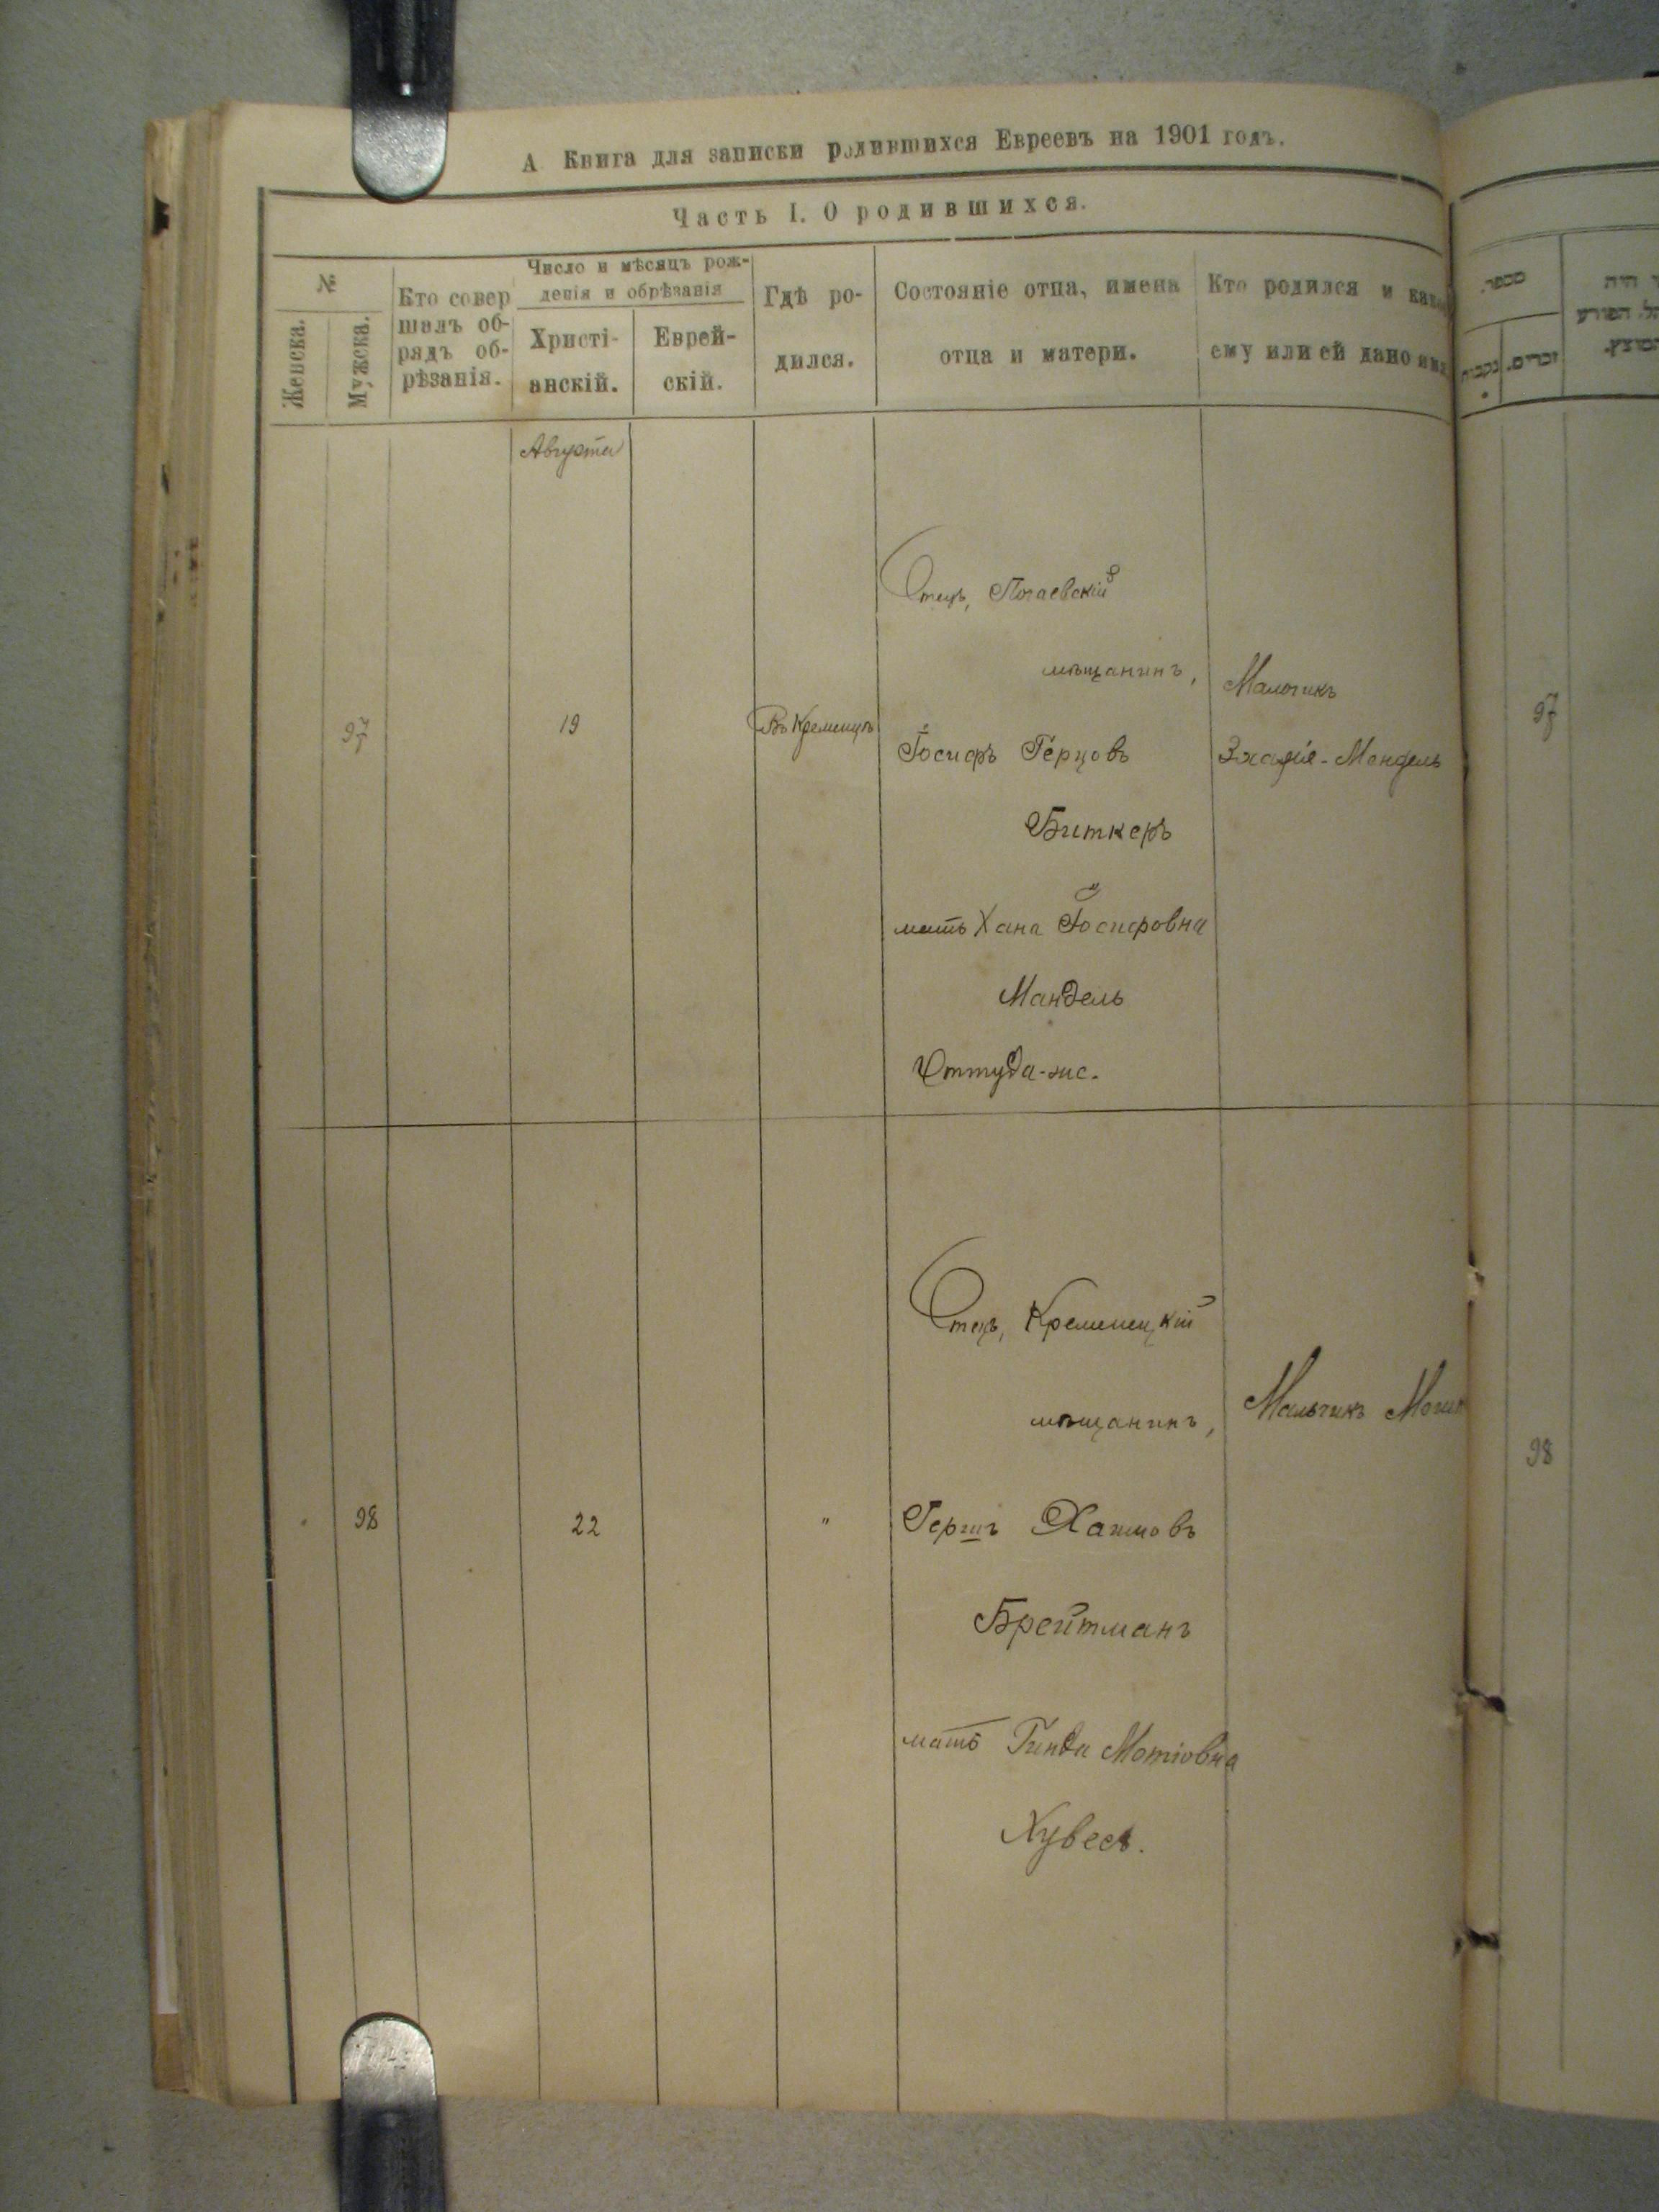 А Книга для записки родившихся Евреевъ на 1901 годъ.
Часть I. О родившихся.
№
Женска.
Мужска.
Кто совер
шалъ об-
рядъ об-
рѣзанія.
Число и мѣсяцъ рож-
денія и обрѣзанія
Христі-
анскій.
Еврей-
скій.
Гдѣ ро-
дился.
Состояніе отца, имена
отца и матери.
Кто родился и како
ему или ей дано имя
Августа
97
19
Въ Кременцѣ
Отецъ, Почаевскій
мѣщанинъ,
Іосифъ Герцовъ
Биткеръ
мать Хана Іосифовна
Мандель
Оттуда-же.
Мальчикъ
Мендель
98
22
"
Отецъ, Кременецкій
мѣщанинъ,
Гершъ Хаимовъ
Брейтманъ
мать Гинда Мотіовна
Хувесъ.
Мальчикъ
מספר.
זכרים.
נקבות
97
98